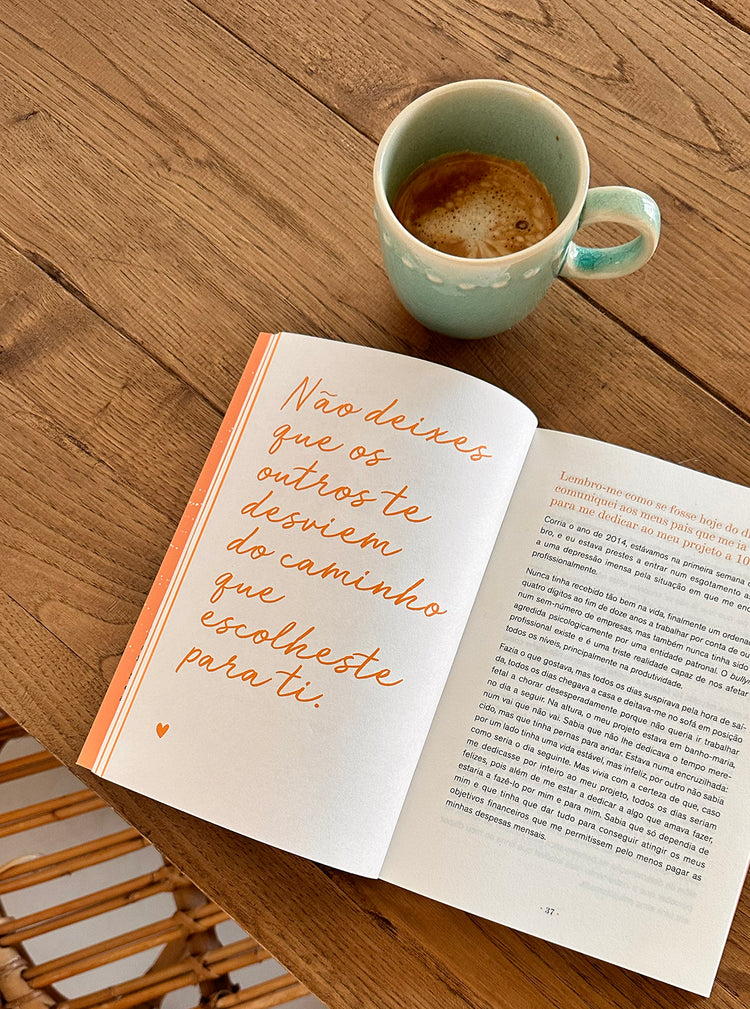 Não deixes
que os
outros te
desviem
do caminho
que
escolheste
para ti.
Lembro-me como se fosse hoje do
comuniquei aos meus pais que me ia
para me dedicar ao meu projeto a 10
Corria o ano de 2014, estávamos na primeira semana
bro, e eu estava prestes a entrar num esgotamento
a uma depressão imensa pela situação em que me
profissionalmente.
Nunca tinha recebido tão bem na vida, finalmente um
quatro dígitos ao fim de doze anos a trabalhar por conta de
num sem-número de empresas, mas também nunca tinha sido
agredida psicologicamente por uma entidade patronal. O
profissional existe e é uma triste realidade capaz de nos
todos os níveis, principalmente na produtividade.
Fazia o que gostava, mas todos os dias suspirava pela hora de saí-
da, todos os dias chegava a casa e deitava-me no sofá em posição
fetal a chorar desesperadamente porque não queria ir trabalhar
no dia a seguir. Na altura, o meu projeto estava em banho-maria,
num vai que não vai. Sabia que não lhe dedicava o tempo mere-
cido, mas que tinha pernas para andar. Estava numa encruzilhada:
por um lado tinha uma vida estável, mas infeliz, por outro não sabia
como seria o dia seguinte. Mas vivia com a certeza de que, caso
me dedicasse por inteiro ao meu projeto, todos os dias seriam
felizes, pois além de me estar a dedicar a algo que amava fazer,
estaria a fazê-lo por mim e para mim. Sabia que só dependia de
mim e que tinha que dar tudo para conseguir atingir os meus
objetivos financeiros que me permitissem pelo menos pagar as
minhas despesas mensais.
· 37 ·